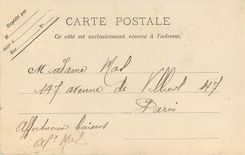 CARTE POSTALE
Ce côté est exclusivement réservé à l'adresse.
Expédié par
M
Rue
Madame Mas
147 avenue de Villiers 147
Paris
Affectueux baisers
Mas